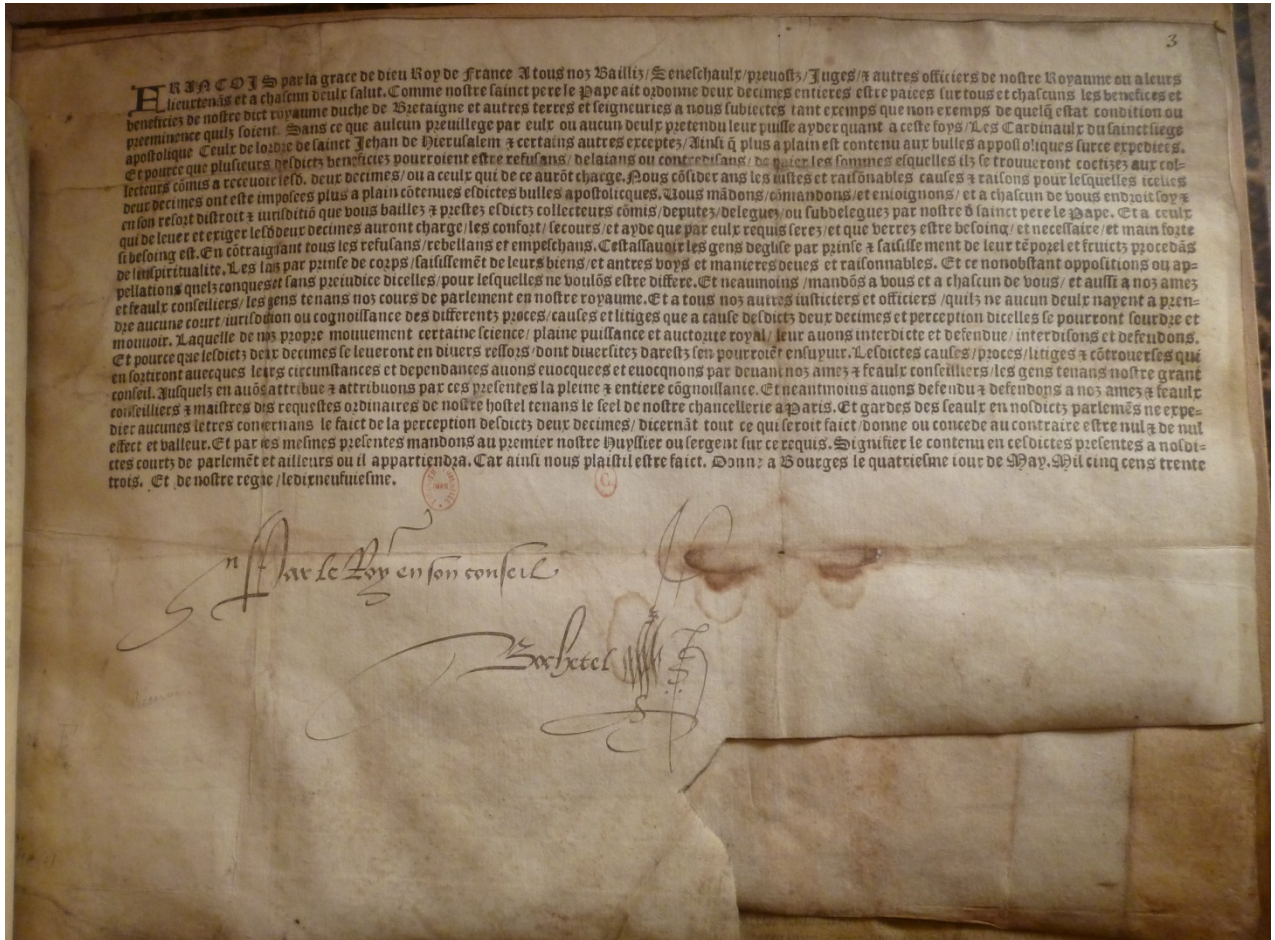 3
FRANCOIS par la grace de dieu Roy de France A tous noz Bailliz/Seneschaulx/preuostz/Juges/⁊ autres officiers de nostre Royaume ou a leurs
lieutenãs et a chascun deulx salut. Comme nostre sainct pere le Pape ait ordonne deux decimes entieres estre paiees sur tous et chascuns les benefices et
beneficies de nostre dict royaume duche de Bretaigne et autres terres et seigneuries a nous subiectes tant exemps que non exemps de quelq̃ estat condition ou
preeminence quilz soient. Sans ce que aulcun preuillege par eulx ou aucun deulx pretendu leur puisse ayder quant a ceste foys/Les Cardinaulx du sainct siege
apostolique Ceulx de lordre de sainct Jehan de Hierusalem ⁊ certains autres exceptez/Ainsi q̃ plus a plain est contenu aux bulles appostoliques surce expediees.
Et pource que plusieurs desdictz beneficiez pourroient estre refusans/delaians ou contredisans/de paier les sommes esquelles ilz se trouueront coctizez aux col-
lecteurs cõmis a receuoir lesd. deux decimes/ou a ceulx qui de ce aurõt charge. Nous cõsiderans les iustes et raisõnables causes ⁊ raisons pour lesquelles icelles
deux decimes ont este imposees plus a plain cõtenues esdictes bulles apostolicques. Uous mãdons/cõmandons/et enioignons/et a chascun de vous endroit soy ⁊
en son resort distroit ⁊ iurisditiõ que vous baillez ⁊ prestez esdictz collecteurs cõmis/deputez/deleguez/ou subdeleguez par nostre d̃ sainct pere le Pape. Et a ceulx
qui de leuer et exiger lesd deux decimes auront charge/les confort/secours/et ayde que par eulx requis serez/et que verrez estre besoing/et necessaire/et main forte
si besoing est. En cõtraignant tous les refusans/rebellans et empeschans. Cestassauoir les gens deglise par prinse ⁊ saisissement de leur tẽporel et fruictz procedãs
de lespiritualite. Les laiz par prinse de corps/saisissemẽt de leurs biens/et antres voys et manieres deues et raisonnables. Et ce nonobstant oppositions ou ap-
pellations quelzconques et sans preiudice dicelles/pour lesquelles ne voulõs estre differe. Et neaumoins/mandõs a vous et a chascun de vous/et aussi a noz amez
et feaulx conseiliers/les gens tenans noz cours de parlement en nostre royaume. Et a tous noz autres iusticiers et officiers/quilz ne aucun deulx nayent a pren-
dre aucune court/iurisdition ou cognoissance des differentz proces/causes et litiges que a cause desdictz deux decimes et perception dicelles se pourront sourdre et
mouuoir. Laquelle de noz propre mouuement certaine science/plaine puissance et auctorite royal/leur auons interdicte et defendue/interdisons et defendons.
Et pource que lesdictz deux decimes se leueront en diuers ressors/dont diuersitez darestz sen pourroiẽt ensuyuir. Lesdictes causes/proces/litiges ⁊ cõtrouerses qui
en sortiront auecques leurs circunstances et dependances auons euocquees et euocqnons par deuant noz amez ⁊ feaulx conseilliers/les gens tenans nostre grant
conseil. Ausquelz en auõs attribue ⁊ attribuons par ces presentes la pleine ⁊ entiere cõgnoissance. Et neantmoius auons defendu ⁊ defendons a noz amez ⁊ feaulx
conseilliers ⁊ maistres des requestes ordinaires de nostre hostel tenans le seel de nostre chancellerie a Paris. Et gardes des seaulx en nosdictz parlemẽs ne expe-
dier aucunes letres concernans le faict de la perception desdictz deux decimes/dicernãt tout ce qui seroit faict/donne ou concede au contraire estre nul ⁊ de nul
effect et valleur. Et par ces mesines presentes mandons au premier nostre Huyssier ou sergent sur ce requis. Signifier le contenu en cesdictes presentes a nosdi-
ctes courtz de parlemẽt et ailleurs ou il appartiendra. Car ainsi nous plaistil estre faict. Donne a Bourges le quatriesme iour de May. Mil cinq cens trente
trois. Et de nostre regne/ledixneufuiesme.
Par le Roy en son conseil
Bochetel